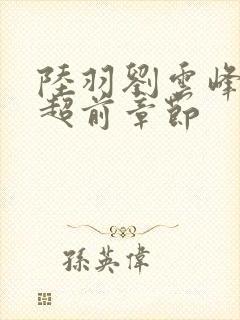 陸羽劉雲峰
超前章節
孫英偉